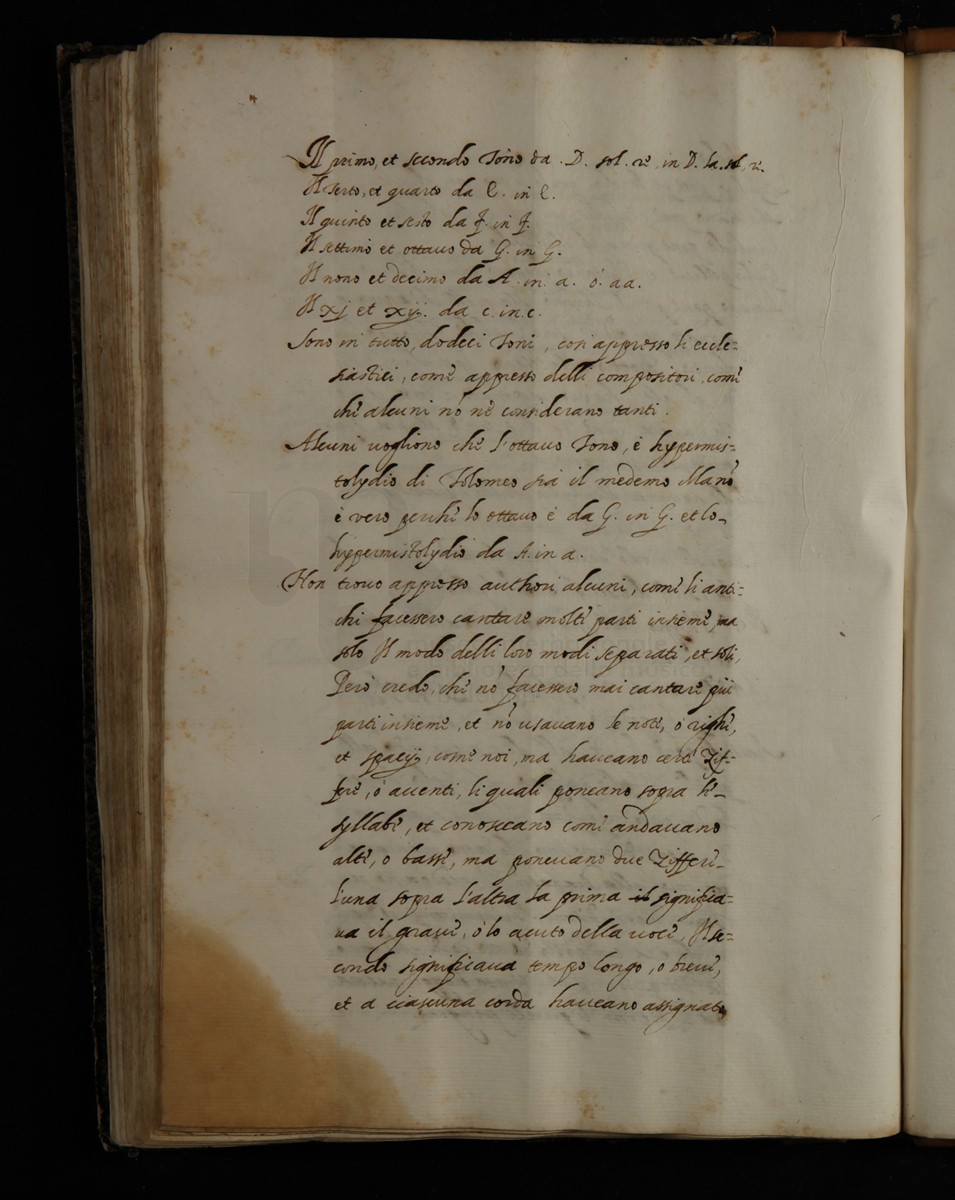 Il primo, et secondo Tono da . D. sol. rè, in D. la. sol, rè.
Il terzo, et quarto da E. in E.
Il quinto et sesto da F. in F.
Il settimo et ottauo da G. in G.
Il nono et decimo da A. in. a. ò. aa.
Il xj et xij. da c. in. c.
Sono in tutto, dodeci Toni, così appresso li eccle=
siastici, comè appresso delli compositori, comè
chè alcuni nò nè considerano tanti.
Alcuni uogliono chè l'ottauo Tono, è hypermis=
tolydio di Tolomeo sia il medemo Ma nò
è vero perchè lo ottauo è da G. in G. et lo
hypermistolydio da A. in a.
Non trouo appresso authori alcuni, comè li anti=
chi facessero cantarè moltè parti insiemè, ma
solo Il modo delli loro modi separati, et soli,
Però credo, chè nò facessero mai cantarè più
parti insiemè, et nò usauano le notè, ò righè,
et spatij, comè noi, ma haueano certè Zif=
ferè, ò accenti, li quali poneano sopra lè
syllabè, et conosceano comè andauano
altè, o bassè, ma poneuano due Zifferè
l'una sopra l'altra La prima il significa=
ua il grauè, ò lo acuto della uocè, Il se=
condo significaua tempo longo, o breuè,
et a ciascuna corda haueano assignato